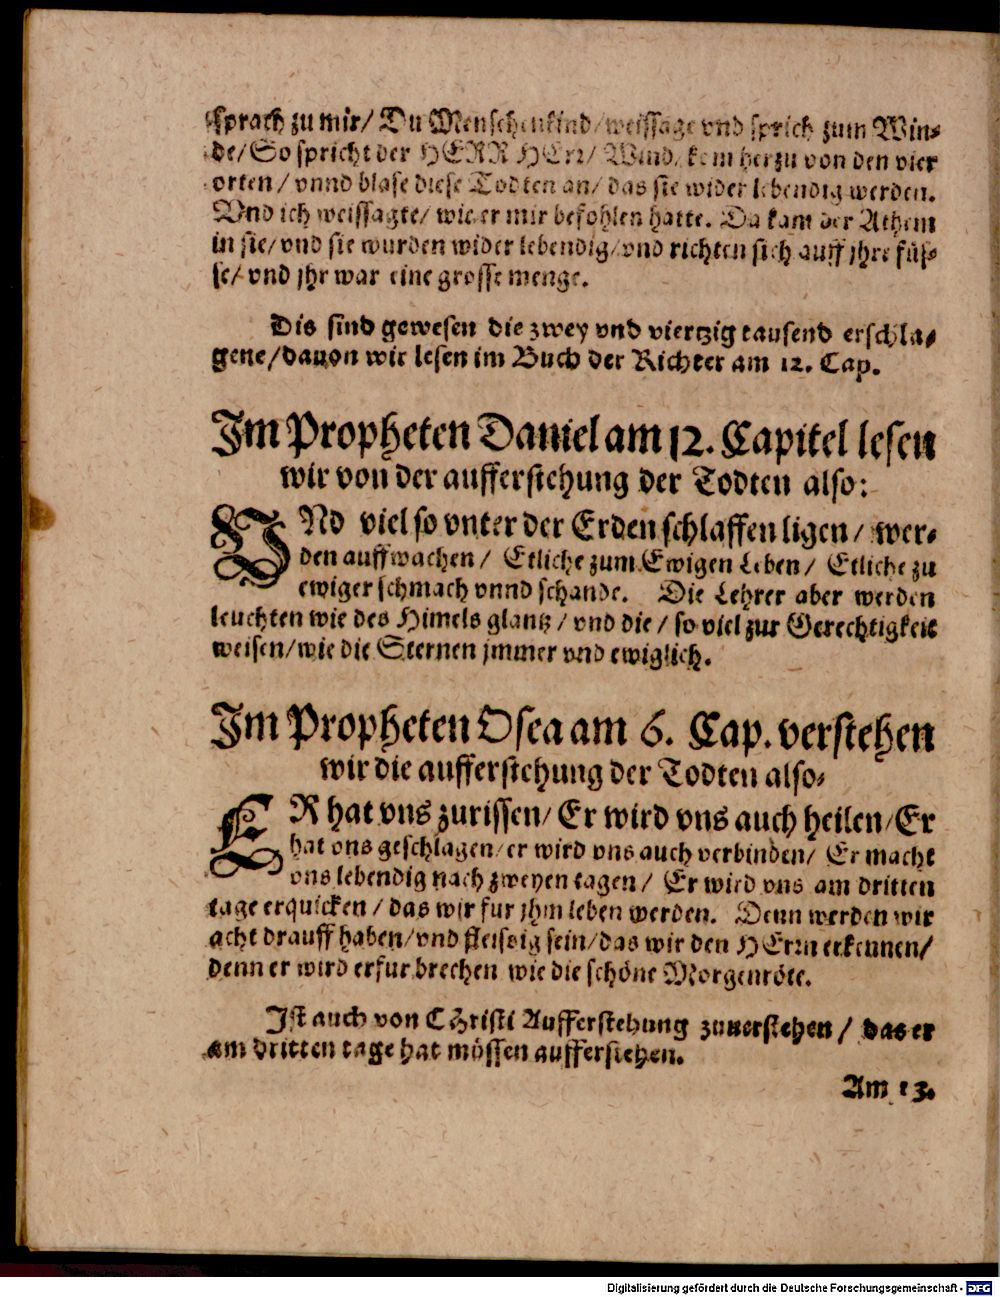 sprach zu mir/ Du Menschenkind/ weissage vnd sprich zum Win-
de/ So spricht der HERR HErr/ Wind/ kom herzu von den vier
orten/ vnnd blase diese Todten an/ das sie wider lebendig werden.
Vnd ich weissagte/ wie er mir befohlen hatte. Da kam der Athem
in sie/ vnd sie wurden wider lebendig/ vnd richten sich auff jhre füs-
se/ vnd jhr war eine grosse menge.
Dis sind gewesen die zwey vnd viertzig tausend erschla-
gene/ dauon wir lesen im Buch der Richter am 12. Cap.
Im Propheten Daniel am 12. Capitel lesen
wir von der aufferstehung der Todten also:
VNd viel so vnter der Erden schlaffen ligen/ wer-
den auffwachen/ Etliche zum Ewigen Leben/ Etliche zu
ewiger schmach vnnd schande. Die Lehrer aber werden
leuchten wie des Himels glantz/ vnd die/ so viel zur Gerechtigkeit
weisen/ wie die Sternen jmmer vnd ewiglich.
Im Propheten Osea am 6. Cap. verstehen
wir die aufferstehung der Todten also-
ER hat vns zurissen/ Er wird vns auch heilen/ Er
hat vns geschlagen/ er wird vns auch verbinden/ Er macht
vns lebendig nach zweyen tagen/ Er wird vns am dritten
tage erquicken/ das wir fur jhm leben werden. Denn werden wir
acht drauff haben/ vnd fleissig sein/ das wir den HErrn erkennen/
denn er wird erfur brechen wie die schöne Morgenröte.
Ist auch von Christi Aufferstehung zuuerstehen/ das er
am dritten tage hat müssen aufferstehen.
Am 13.
Digitalisierung gefördert durch die Deutsche Forschungsgemeinschaft - DFG